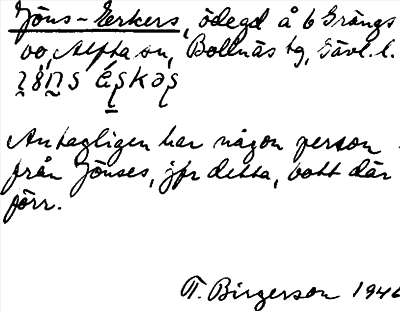 Jöns-Erkers, ödegd å b Grängs
vo, Alfta sn, Bollnäs tg, Gävl. l.
Antagligen har någon person
från Jönses, jfr detta, bott där
förr.
T. Birgerson 1946